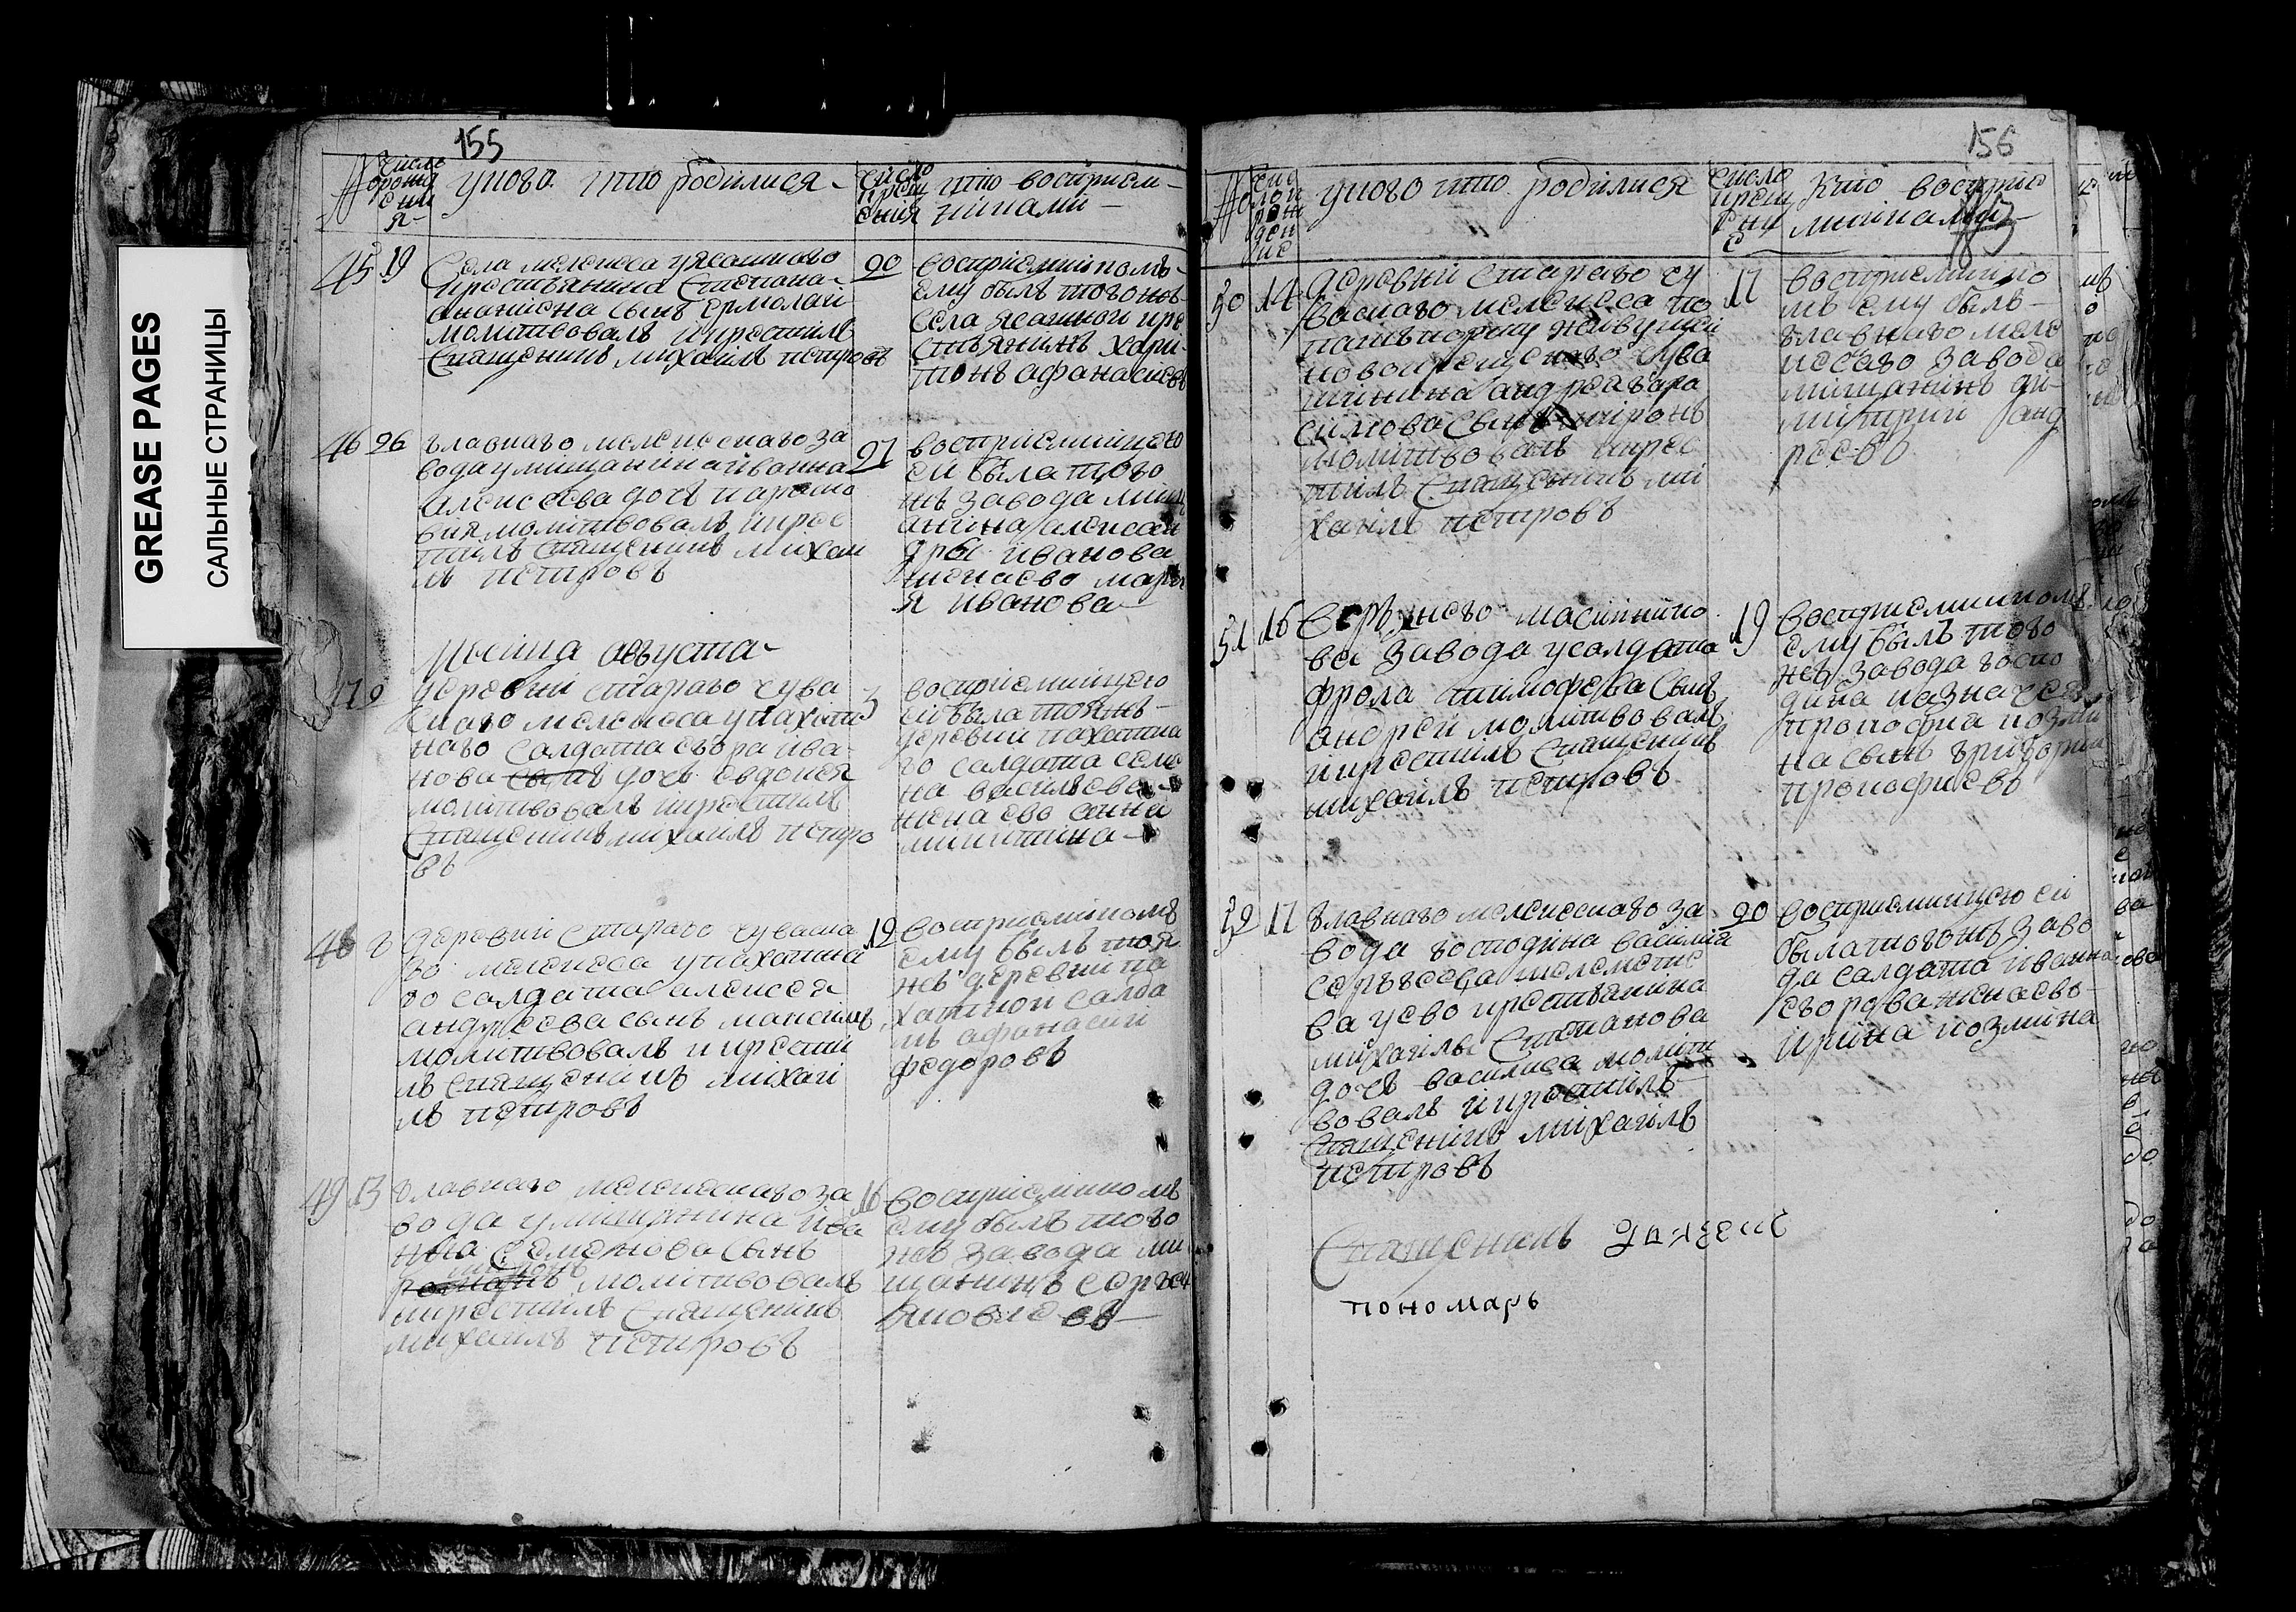 GREASE PAGES
САЛЬНЫЕ СТРАНИЦЫ
155
№
число
рожд
ени
я
у кого кто родилися
число
крещ
ения
кто восприем
никами
45 19
Села мелекеса у ясашного
крестьянина Степана
ананьина сынъ ермолай
молитвовалъ и крестилъ
Священикъ михаилъ петровъ
20
восприемникомъ
ему былъ того жъ
села ясашной кре
стьянинъ хари
тонъ афанасьевъ
46 26
главнаго мелекескаго за
вода у мищанина иванна
алексеева дочь параско
вия молитвовалъ и крес
тилъ священикъ михаи
лъ петровъ
27
восприемницею
ей была того
жъ завода мищ
анина алексан
дры иванова
жена ево марь
я иванова
Месица августа
47 2
деревни старого чува
скаго мелекеса у пахатно
наго салдата егора ива
нова сынъ дочь евдокея
молитвовалъ и крестилъ
Священикъ михаилъ петро
въ
3
восприемницею
ей была тояжъ
деревни пахатна
го салдата семе
на василева
жена ево анна
никитина
48 8
деревни Старого чуваша
го мелекеса у пахатна
го салдата алексея
андреева сынъ максимъ
молитвовалъ и крести
лъ священикъ михаи
лъ петровъ
12
восприемникомъ
ему былъ тоя
жъ деревни па
хатной салда
тъ афанасий
федоровъ
49 13
главнаго мелекескаго за
вода у мищанина ива
нна семенова сынъ
молитвовалъ
и крестилъ священикъ
михаилъ петровъ
16
восприемникомъ
ему былъ того
же завода ми
щанинъ сергей
яковлевъ
156
№
число
рож
ден
ие
у кого кто родилися
число
крещ
ени
е
кто восприе
мниками
50 14
деревни старого чу
васкаго мелекеса по
пашпорту живущей
новокрещенаго чува
шинина андрея гара
симова сынъ миронъ
молитвовалъ и крес
тилъ Священикъ ми
хаилъ петровъ
17
восприемнико
мъ ему былъ
главнаго меле
кескаго завода
мищанинъ ди
митрий анд
реевъ
51 16
завода у салдата
фрола тимофеева сынъ
андрей молитвовалъ
и крестилъ Священикъ
михаилъ петровъ
19
восприемникомъ
ему былъ того
жъ завода госпо
дина казначея
прокофиа козми
на сынъ григорий
прокофиевъ
52 17
главнаго мелекескаго за
вода господина василия
сергъеева
ва у ево крестьянина
михаилы Степанова
дочь василиса молит
вовалъ и крестилъ
Священикъ михаилъ
петровъ
20
восприемницею ей
была того жъ заво
да салдата иванна
егорова жена евъ
ирина козмина
Священикъ
пономарь